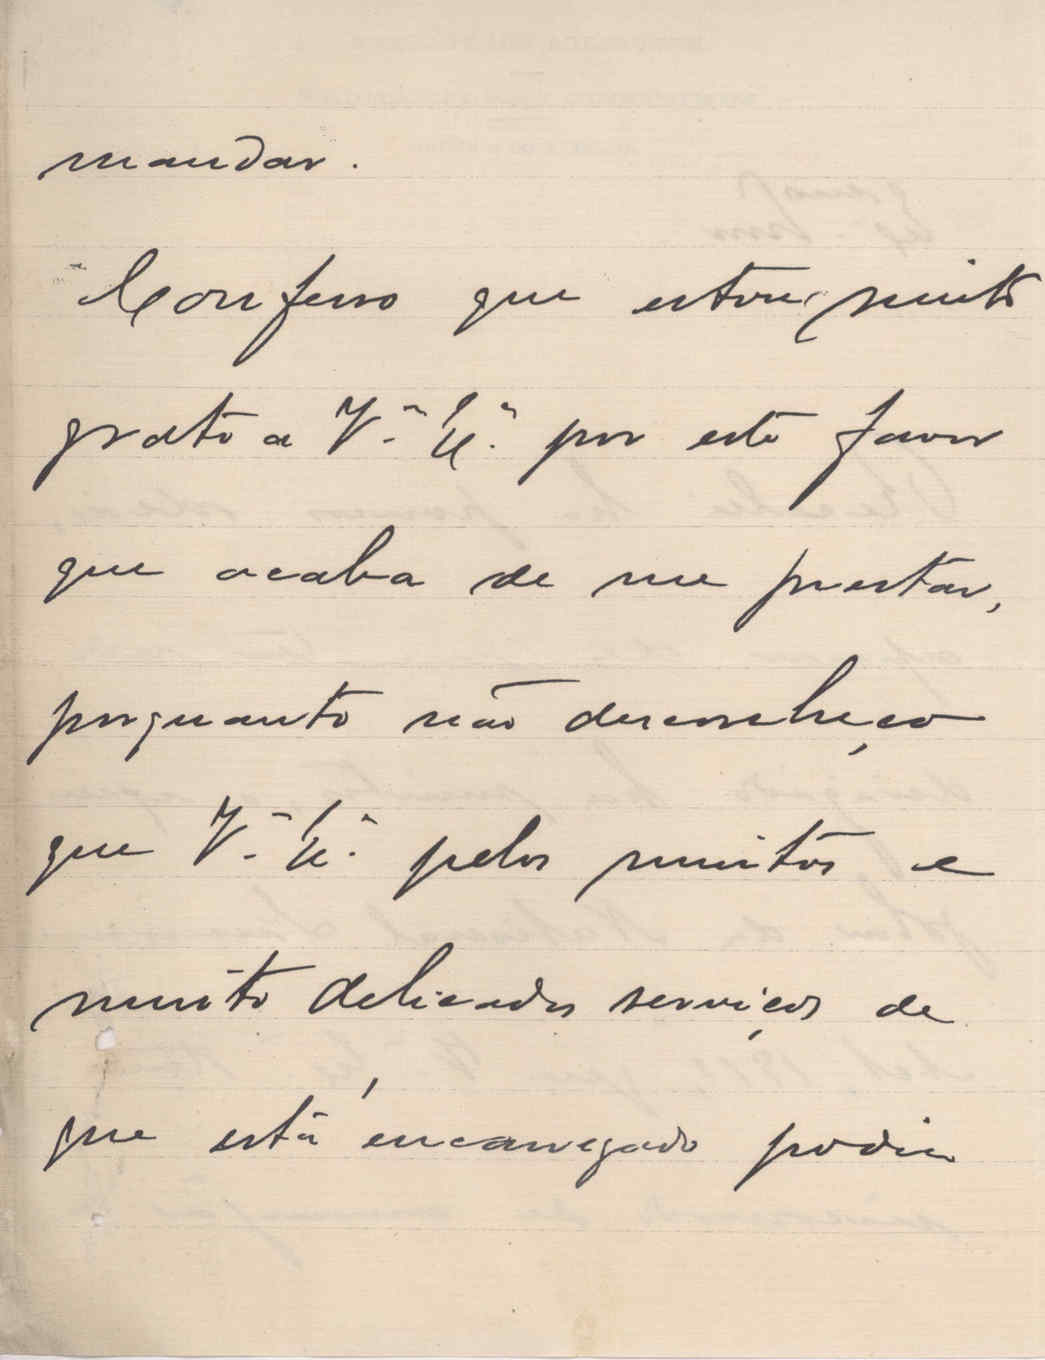 mandar.
Confesso que estou muito
grato a V.ª Ex.ª por este favor
que acaba de me prestar,
porquanto não desconheço
que V.ª Ex.ª pelos muitos e
muito delicados serviços de
que está encarregado podia